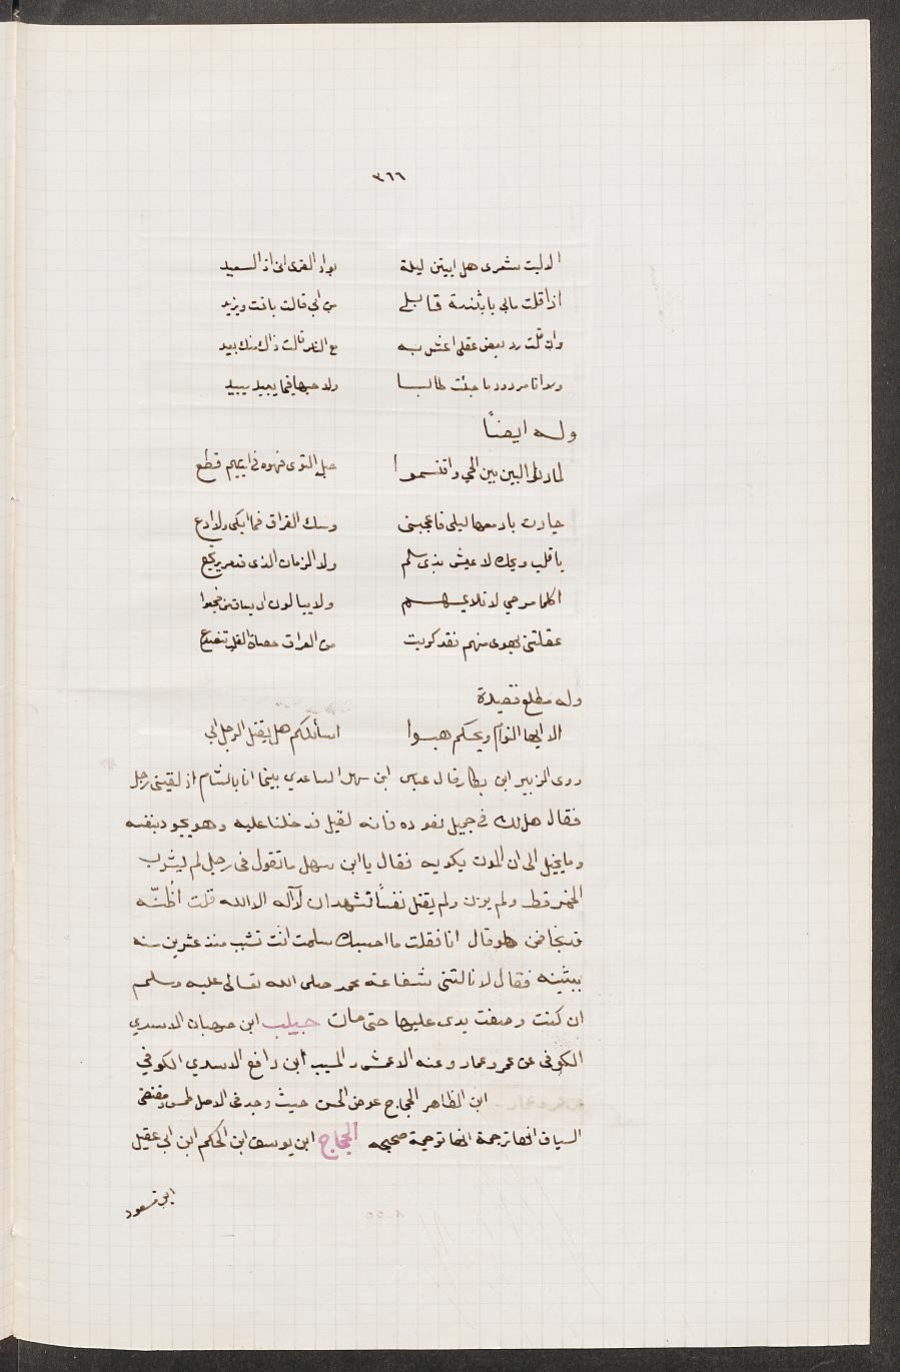 ٣٦٦
الا ليت شعرى هل ابيتن ليلة بواد القرى انى اذا لسعيد
اذا قلت مابى يا بثينة قاتلى من الحب قالت ثابت ويزيد
وان قلت رد بعض عقلى اعش به مع الناس قالت ذاك منك بعيد
ولا انا مردود بما جئت طالبا ولا حبها فيما يبيد يبيد
وله ايضاً
لما دنا البين بين الحي واقتسموا حبل النوى فهو فى ايديهم قطع
جادت بادمعها ليلى فاعجبنى وشك الفراق فما ابكى ولا ادع
يا قلب ويحك لا عيش بذى سلم ولا الزمان الذى قد مر يرتجع
اكلما مر حي لا تلايمهم ولا يبالون ان يشتاق من فجعوا
علقتنى بهوى منهم فقد كربت من الفراق حصاة القلب تنصدع
وله مطلع قصيدة
الا ايها النوام ويحكم هبوا اسائلكم هل يقتل الرجل الحب
روى الزبير ابن بكار قال عباس ابن سهل الساعدي بينما انا بالشام اذ لقينى رجل
فقال هل لك فى جميل نعوده فانه لقيل فدخلنا عليه وهو يجود بنفسه
وما يخيل الى ان الموت يكربه فقال يا ابن سهل ما تقول فى رجل لم يشرب
الخمر قط ولم يزن ولم يقتل نفساً تشهد ان لا آله الا الله قلت اظنّه
قد نجا فمن هو قال انا فقلت ما احسبك سلمت انت تشبب منذ عشرين سنه
ببثينه فقال لا نالتنى شفاعة محمد صلى الله تعالى عليه وسلم
ان كنت وضعت يدى عليها حتى مات حبيب ابن صهبان الاسدي
الكوفى عن عمر وعمار وعنه الاعمش والمسيب ابن رافع الاسدي الكوفي
ابن الظاهر الحجاج عوض الحسن حيث وجد فى الاصل طمس ومقتضى
السياق انها ترجمة انها ترجمة صحيحه الحجاج ابن يوسف ابن الحكم ابن ابى عقيل
ابن مسعود